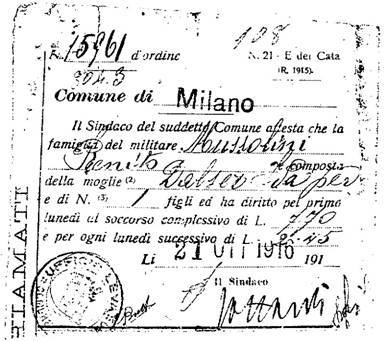 N. 15961 d'ordine
108
N. 21 - E dei Cata
(R. 1915).
Comune di Milano
Il Sindaco del suddetto Comune attesta che la
famiglia del militare Mussolini
Benito è composta
della moglie (2) Dalser Ida per
e di N. (3) 1 figli ed ha diritto per primo
lunedì al soccorso complessivo di L.
e per ogni lunedì successivo di L. 2.45
Li 21 OTT 1916 191
Il Sindaco
UFFICIO LEVA